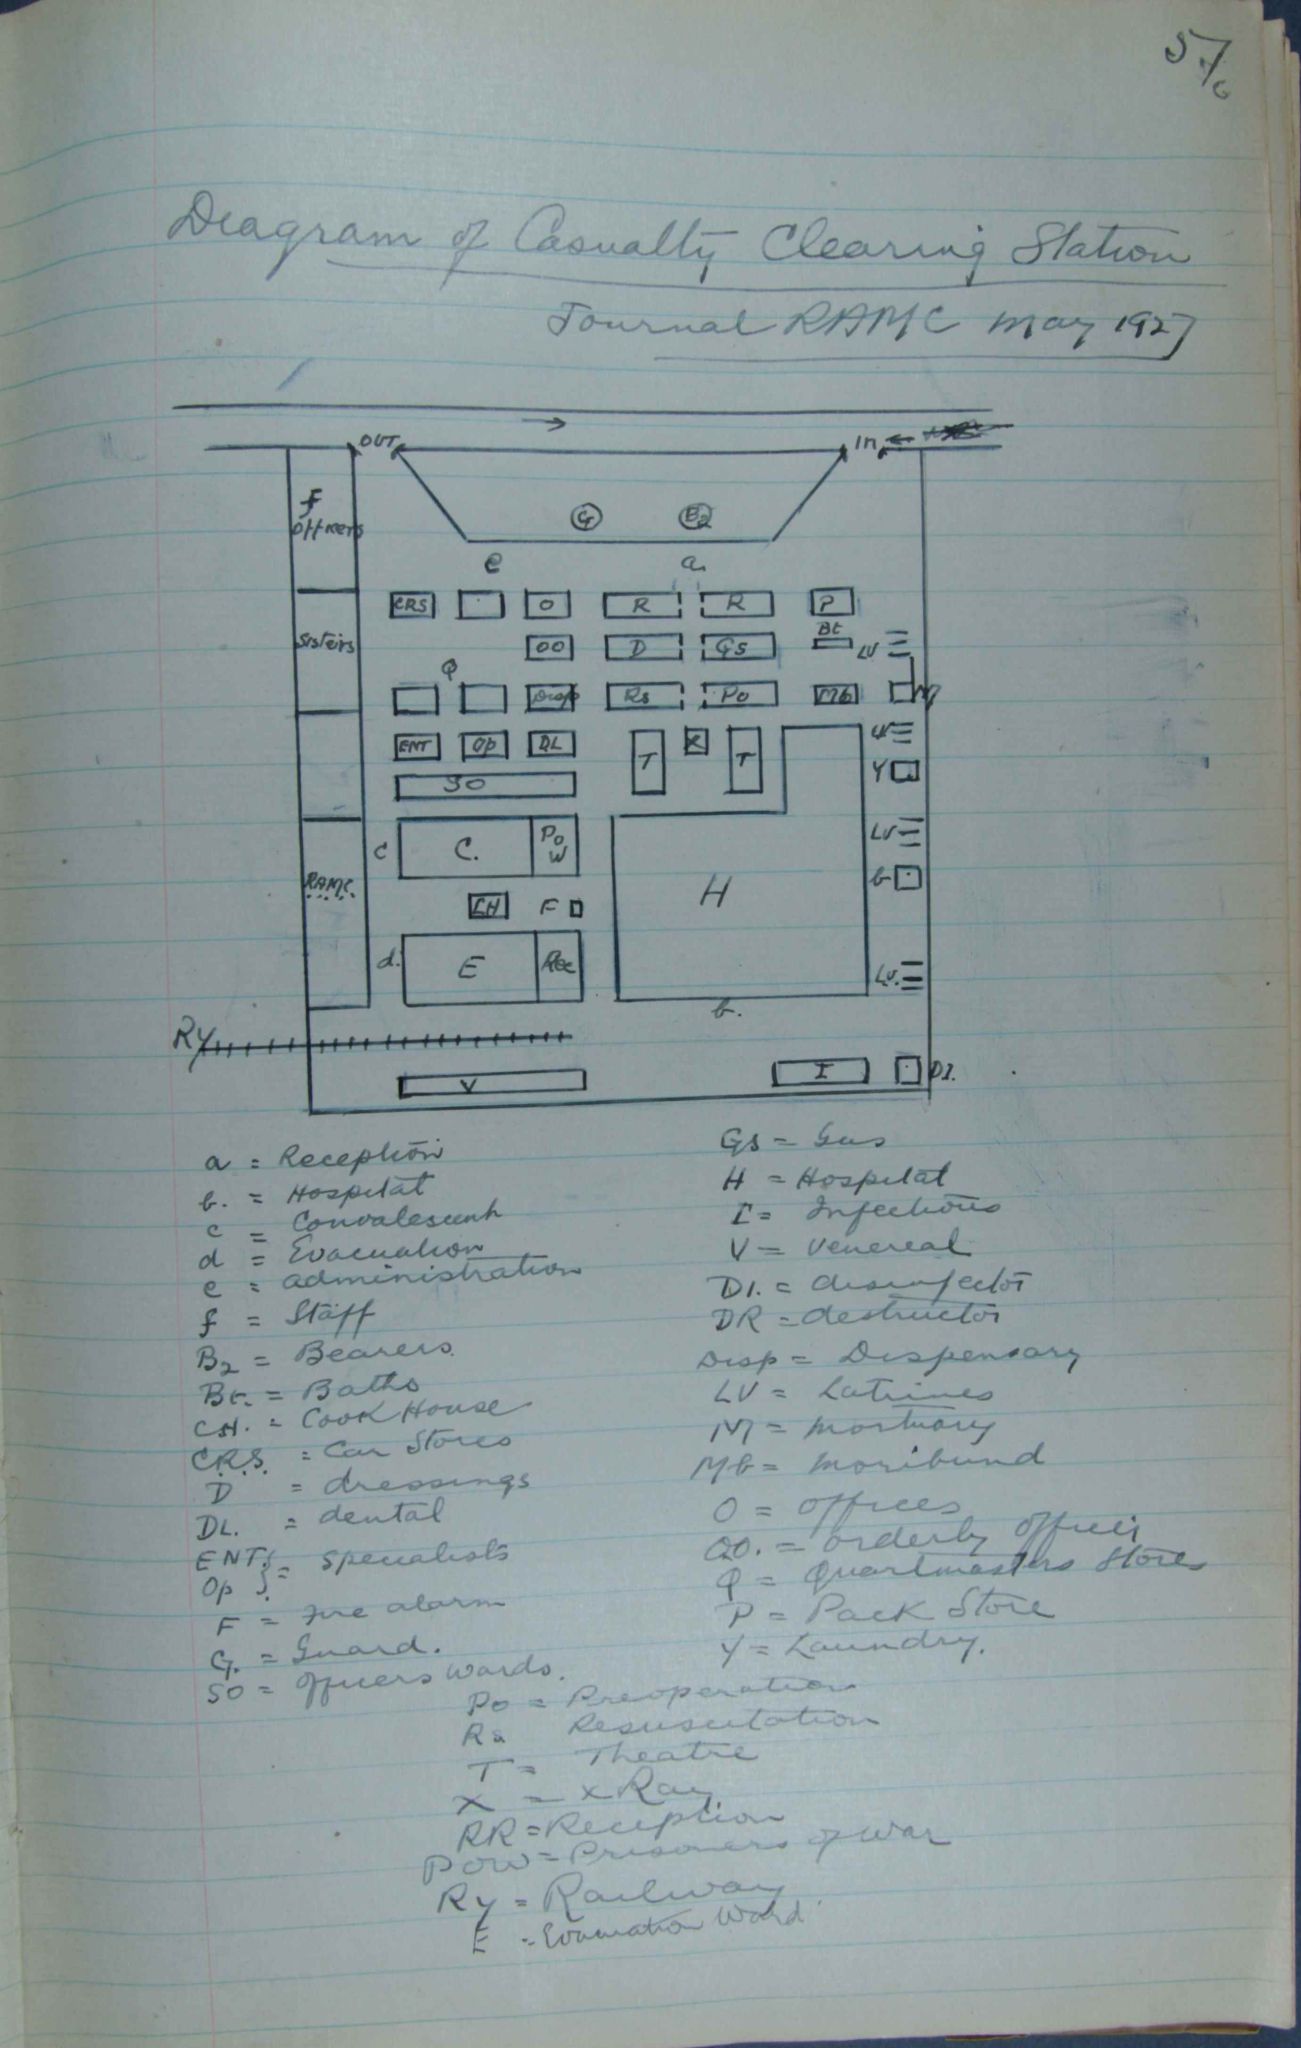 57
Diagram of Casualty Clearing Station
Journal RAMC May 1927
OUT
In
f
officers
G
B2
e
a.
CRS
O
R
R
P
Bt
Sisters
OO
D
Gs
LV
Q
Disp
Rs
Po
Mb
M
ENT
Op
DL
T
X
T
LV
Y
SO
c
C.
Po
W
LV
RAMC
CH
F
H
b
d.
E
Rec
LV.
b.
Ry
V
I
DI.
a = Reception
b. = Hospital
c = Convalescent
d = Evacuation
e = administration
f = Staff
B2 = Bearers.
Bt. = Baths
CH. = Cook House
C.R.S. = Car Stores
D = dressings
DL. = dental
ENT } = Specialists
Op
F = Fire alarm
G. = Guard.
SO = officers wards.
Gs = Gas
H = Hospital
I = Infectious
V = Venereal
DI. = disinfector
DR = destructor
Disp = Dispensary
LV = Latrines
M = mortuary
Mb = moribund
O = offices
OO. = orderly officer
Q = Quartmasters Stores
P = Pack Store
Y = Laundry.
Po = Preoperation
Rs Resuscitation
T = Theatre
X = x Ray
RR = Reception
POW = Prisoners of War
Ry = Railway
E = Evacuation Ward